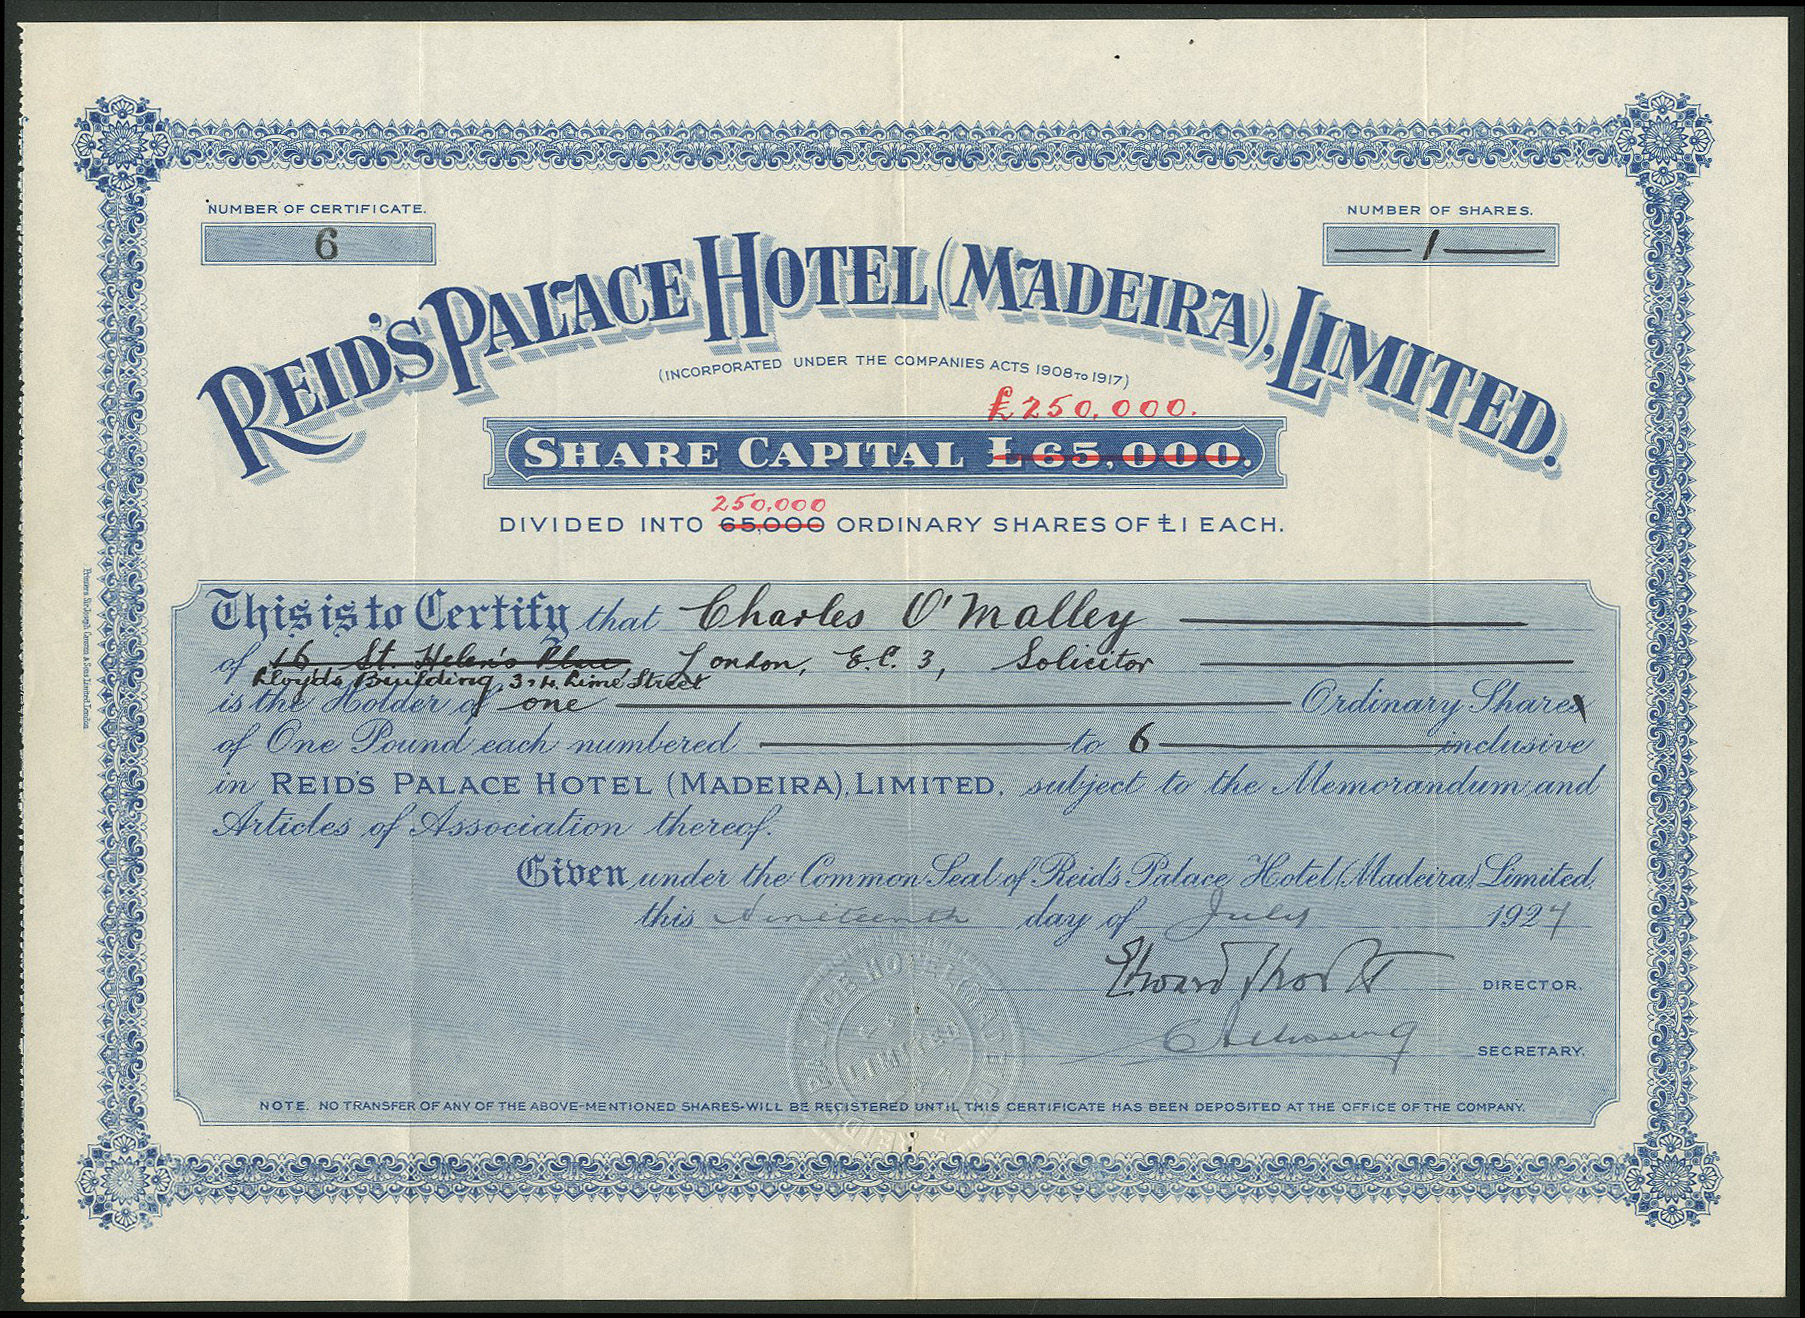 NUMBER OF CERTIFICATE.
6
NUMBER OF SHARES.
1
REID'S PALACE HOTEL (MADEIRA), LIMITED.
(INCORPORATED UNDER THE COMPANIES ACTS 1908 TO 1917)
£250,000.
SHARE CAPITAL £65,000.
250,000
DIVIDED INTO 65,000 ORDINARY SHARES OF £1 EACH.
This is to Certify that Charles O'Malley
of 16 St. Helen's Place, London, E.C. 3, Solicitor
Lloyds Building, 3 & 4 Lime Street
is the Holder of one Ordinary Shares
of One Pound each numbered to 6 inclusive
in REID'S PALACE HOTEL (MADEIRA), LIMITED, subject to the Memorandum and
Articles of Association thereof.
Given under the Common Seal of Reid's Palace Hotel (Madeira) Limited,
this nineteenth day of July 1927
DIRECTOR.
SECRETARY.
NOTE. NO TRANSFER OF ANY OF THE ABOVE-MENTIONED SHARES WILL BE REGISTERED UNTIL THIS CERTIFICATE HAS BEEN DEPOSITED AT THE OFFICE OF THE COMPANY.
REID'S PALACE HOTEL (MADEIRA)
LIMITED
Printers Sir Joseph Causton & Sons Limited London